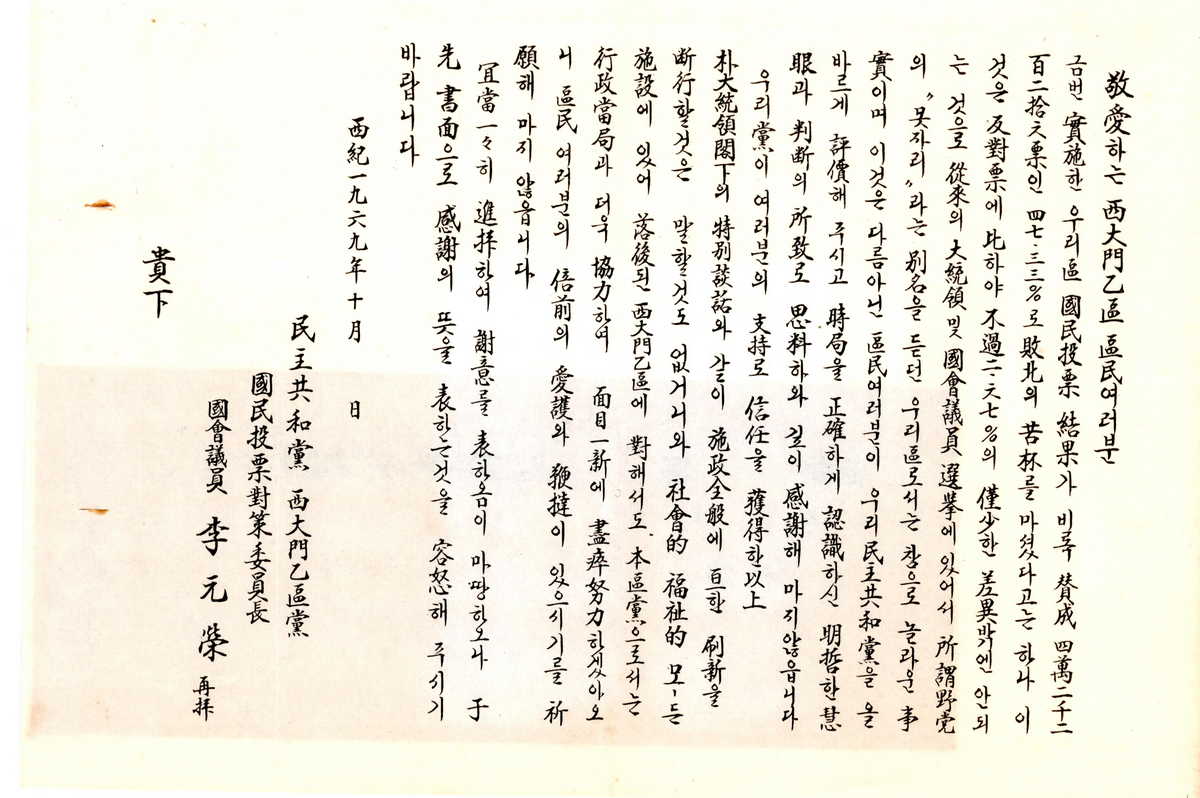 敬愛하는 西大門乙區 區民여러분
금번 實施한 우리區 國民投票 結果가 비록 贊成 四萬二千二
百二拾六票인 四七·三三%로 敗北의 苦杯를 마셨다고는 하나 이
것은 反對票에 比하야 不過 二·六七%의 僅少한 差異밖엔 안되
는 것으로 從來의 大統領 및 國會議員 選擧에 있어서 所謂野党
의 “못자리”라는 別名을 듣던 우리區로서는 참으로 놀라운 事
實이며 이것은 다름아닌 區民여러분이 우리 民主共和黨을 올
바르게 評價해 주시고 時局을 正確하게 認識하신 明哲한 慧
眼과 判断의 所致로 思料하와 깊이 感謝해 마지않읍니다
우리黨이 여러분의 支持로 信任을 獲得한以上
朴大統領閣下의 特別談話와 같이 施政全般에 亘한 刷新을
断行할것은 말할것도 없거니와 社會的 福祉的 모-든
施設에 있어 落後된 西大門乙區에 對해서도 本區黨으로서는
行政當局과 더욱 協力하여 面目一新에 盡瘁努力하겠아오
니 區民 여러분의 倍前의 愛護와 鞭撻이 있으시기를 祈
願해 마지 않읍니다
宜當 一々히 進拜하여 謝意를 表하옴이 마땅하오나 于
先 書面으로 感謝의 뜻을 表하는것을 容恕해 주시기
바랍니다
西紀一九六九年 十月 日
民主共和黨 西大門乙區黨
國民投票對策委員長
國會議員 李元榮 再拜
貴下